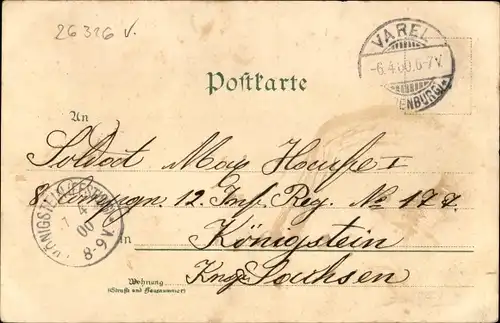 26326 V.
VAREL
-6.4.00.6-7V
(OLDENBURG)
Postkarte
An
Soldat Max Haufe I
8. Compagn. 12. Inf. Reg. No 177.
KÖNIGSTEIN (FESTUNG)
7 4
00
8-9V.
in Königstein
Kngr. Sachsen
Wohnung
(Straße und Hausnummer)